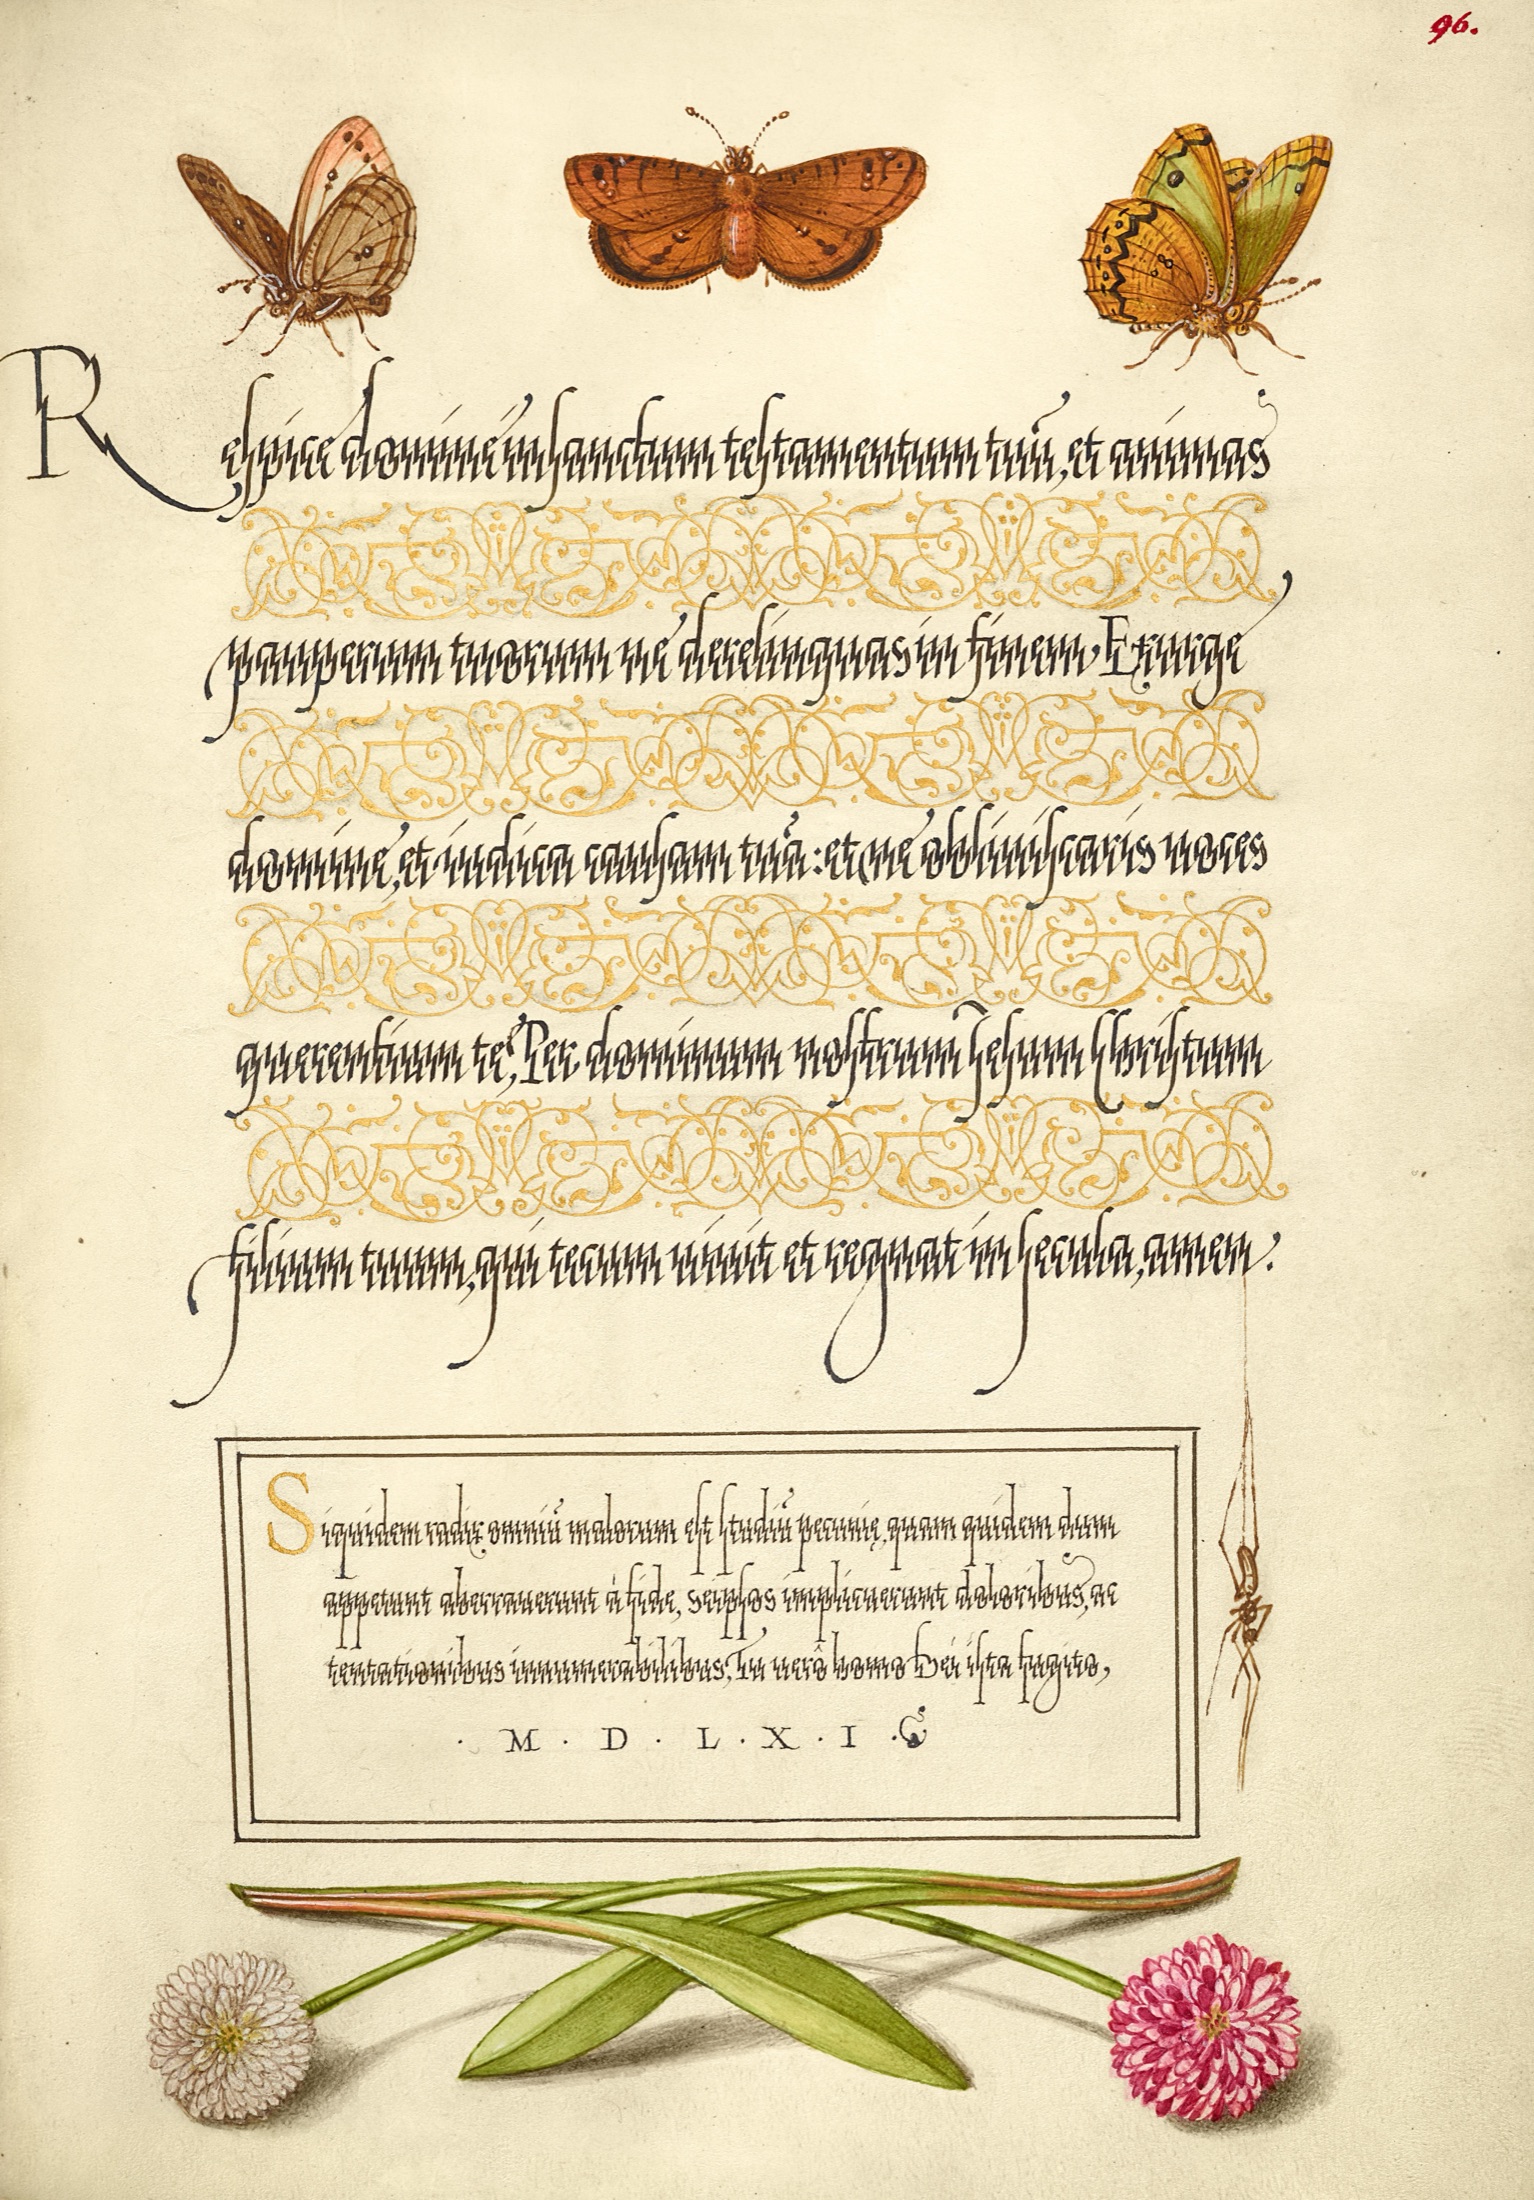 96.
Respice domine in sanctum testamentum tuũ, et animas
pauperum tuorum ne derelinquas in finem. Exurge
domine, et iudica causam tuã: et ne obliuiscaris uoces
querentium te, Per dominum nostrum Iesum Christum
filium tuum, qui tecum uiuit et regnat in secula, amen.
Siquidem radix omniũ malorum est studiũ pecunię, quam quidem dum
appetunt aberrauerunt à fide, seipsos implicuerunt doloribus, ac
tentationibus innumerabilibus, Tu uerô homo Dei ista fugito,
· M · D · L · X · I ·